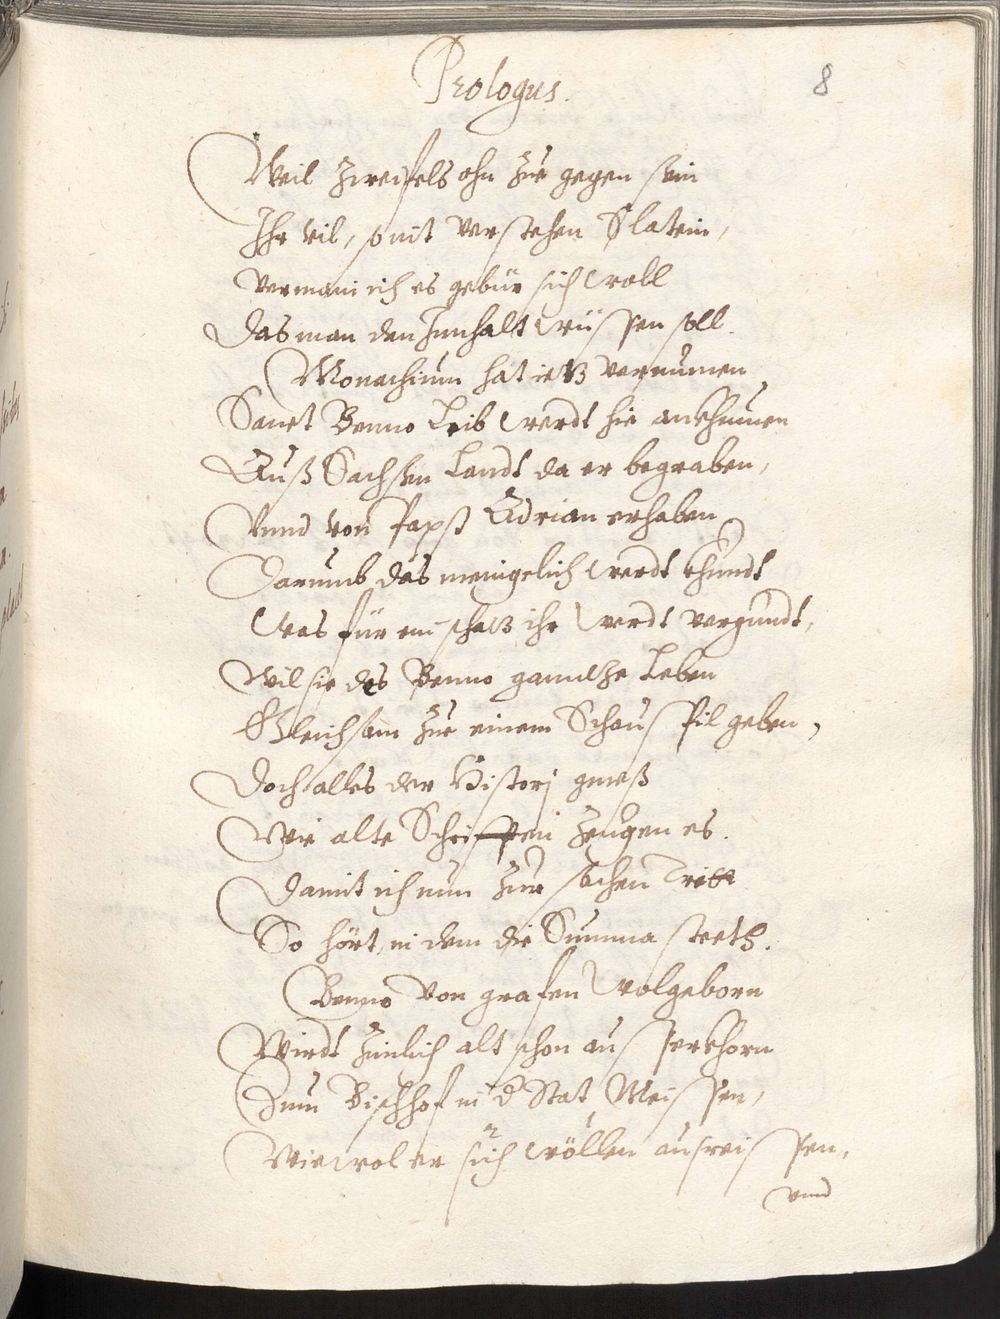 Prologus.
8
Weil Zweifels ohn Zue gegen sein
Ihr vil, so nit verstehen Slatein,
Vermain ich es gebür sich woll
Das man den Innhalt wüssen soll.
Monachium hat ietz vernumen
Sanct Benno Leib werdt hie ankhumen
Auß Sachsen Landt da er begraben,
Vnnd von Papst Adrian erhaben
Darumb das menigelich werdt khundt
Was für ein schatz ihr werdt vergundt,
Wil sie des Benno gantze Leben
Gleichsam Zue einem Schauspil geben,
Doch alles der Histori gmeß
Wie alte Schrifften Zeugen es.
Damit ich nun Zur sachen Trette
So hört, in dem die Summa steeth.
Benno von grafen wolgeborn
Wirdt Zimlich alt schon ausserkhorn
Zum Bischhof in d Stat Meissen,
Wiewol er sich wöllen ausreissen,
vnnd